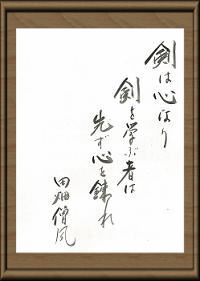 剣は心なり
剣を学ぶ者は
先ず心を錬れ
田畑僧風